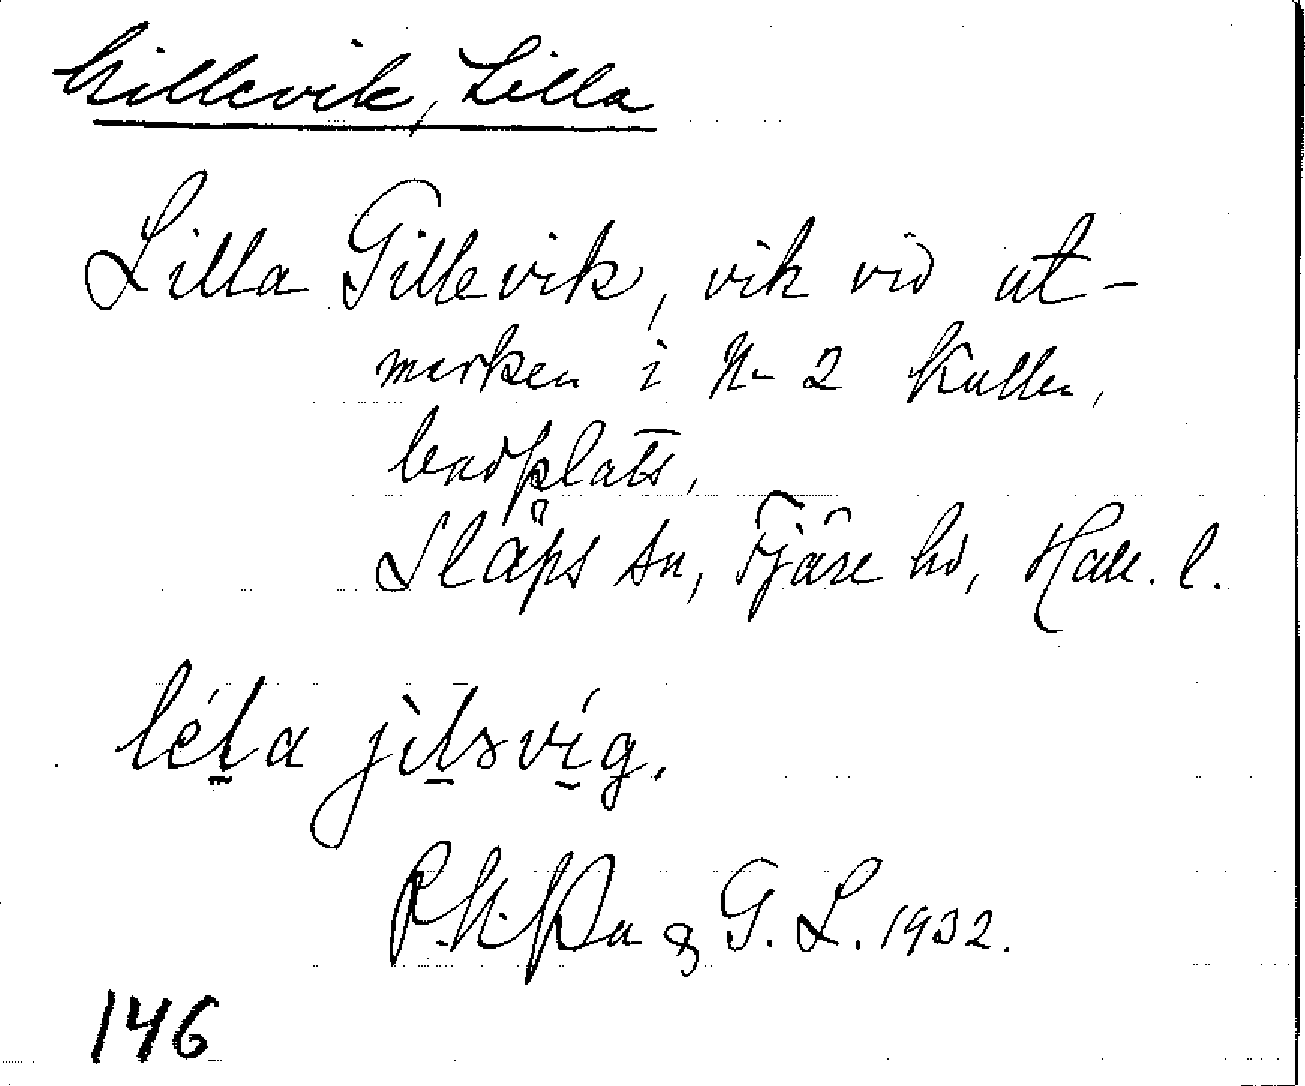 Gillevik, Lilla
Lilla Gillevik, vik vid ut-
marken i Nr 2 Kullen,
badplats,
Släps sn, Fjäre hd, Hall. l.
léla jìləvíg.
& G. L. 1932.
146